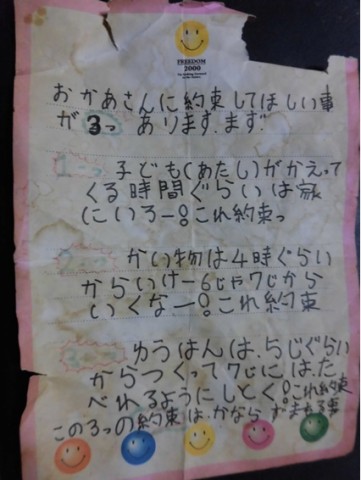 FREEDOM
2000
おかあさんに約束してほしい事
が3つ あります。まず。
1つ 子ども(あたし)がかえって
くる時間ぐらいは家
にいろー!これ約束っ
2つ かい物は4時ぐらい
からいけー6じゃ7じから
いくなー!これ約束
3つ ゆうはんは、5じぐらい
からつくって7じには、た
べれるようにしとく!これ約束
この3つの約束は、かならずまもる事